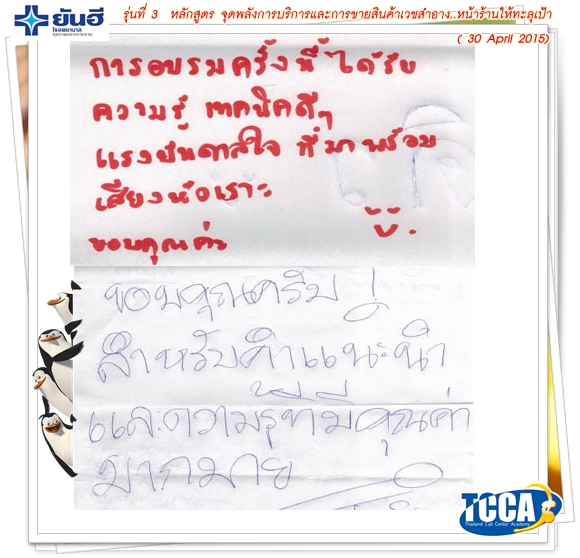 ยันฮี
โรงพยาบาล
รุ่นที่ 3 หลักสูตร จุดพลังการบริการและการขายสินค้าเวชสำอาง..หน้าร้านให้ทะลุเป้า
( 30 April 2015)
การอบรมครั้งนี้ได้รับ
ความรู้ เทคนิคดีๆ
แรงบันดาลใจ ที่มาพร้อม
เสียงหัวเราะ
ขอบคุณค่ะ
ขอบคุณครับ !
สำหรับคำแนะนำ
และความรู้ที่มีคุณค่า
มากมาย
TCCA
Thailand Call Center Academy